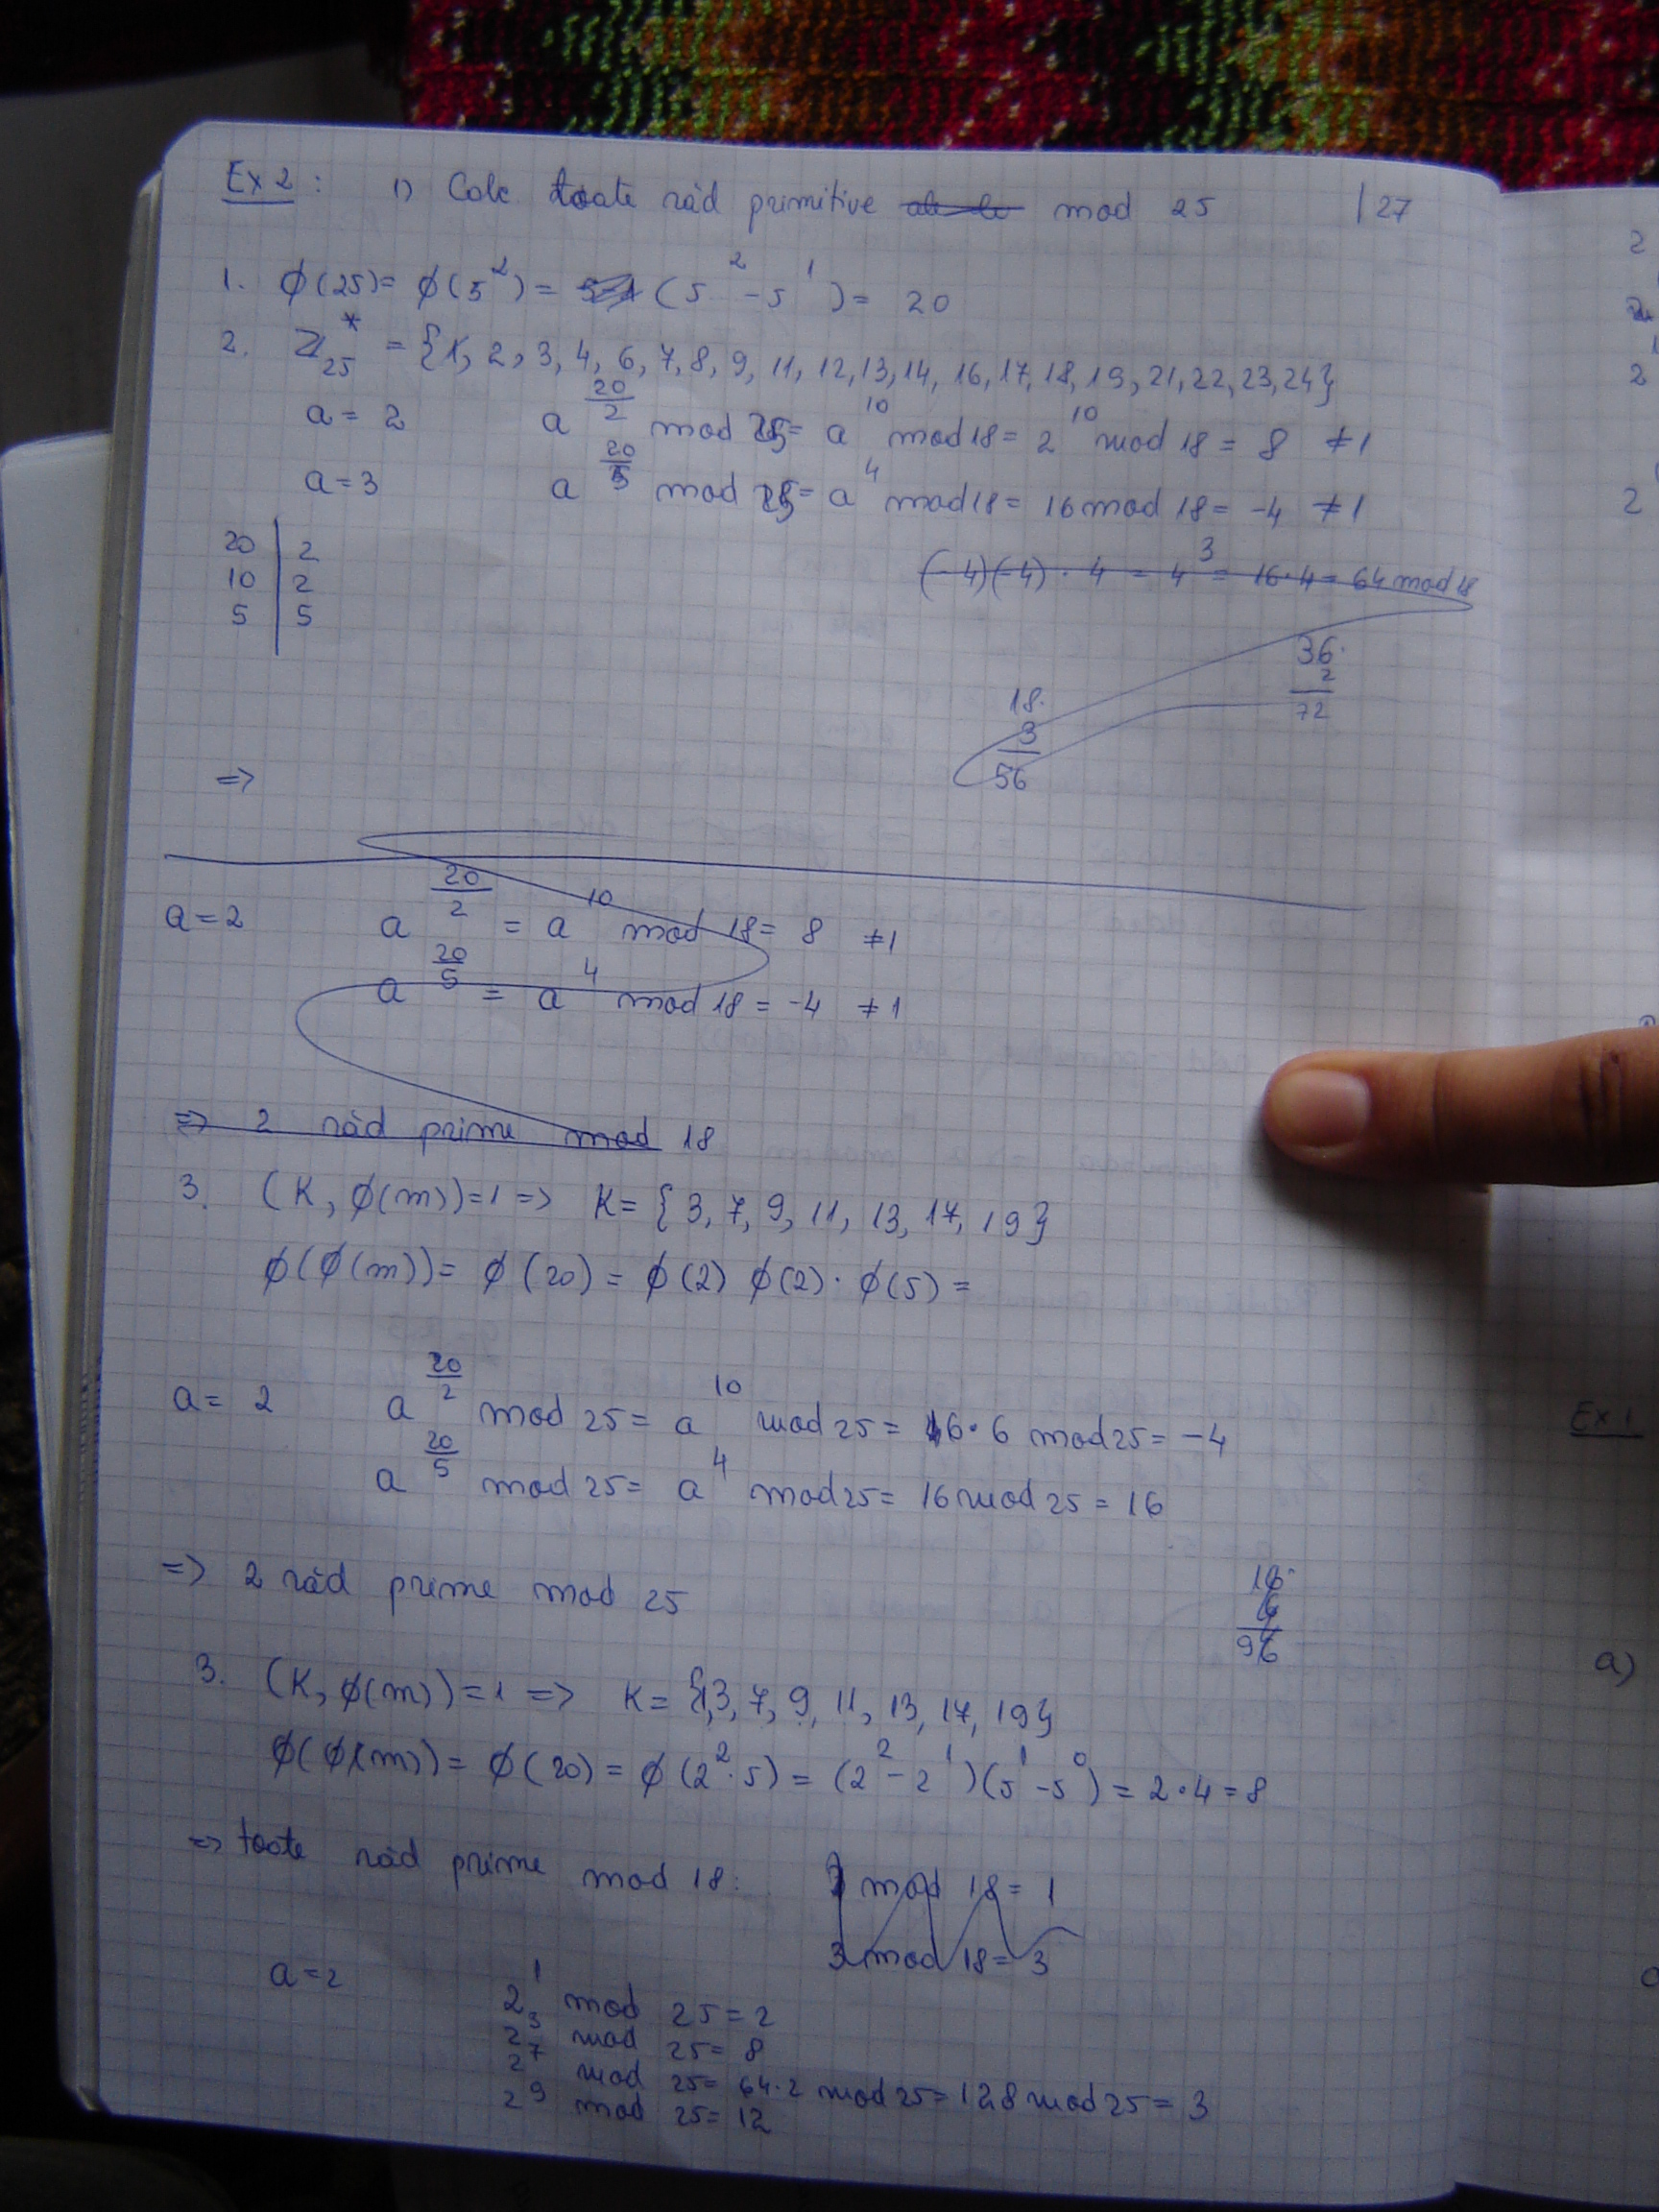 Ex 2 : 1) Calc toate răd primitive mod 25 | 27
1. ϕ(25) = ϕ(5^2) = (5^2 - 5^1) = 20
2. Z*_25 = {1, 2, 3, 4, 6, 7, 8, 9, 11, 12, 13, 14, 16, 17, 18, 19, 21, 22, 23, 24}
a = 2 a^(20/2) mod 25 = a^10 mod 18 = 2^10 mod 18 = 8 ≠ 1
a = 3 a^(20/5) mod 25 = a^4 mod 18 = 16 mod 18 = -4 ≠ 1
20 | 2
10 | 2
5 | 5
(-4)(-4) · 4 = 4^3 = 16·4 = 64 mod 18
36·
2
72
18·
3
56
=>
a = 2 a^(20/2) = a^10 mod 18 = 8 ≠ 1
a^(20/5) = a^4 mod 18 = -4 ≠ 1
=> 2 răd prime mod 18
3. (K, ϕ(m)) = 1 => K = {3, 7, 9, 11, 13, 17, 19}
ϕ(ϕ(m)) = ϕ(20) = ϕ(2) ϕ(2) · ϕ(5) =
a = 2 a^(20/2) mod 25 = a^10 mod 25 = 16·6 mod 25 = -4
a^(20/5) mod 25 = a^4 mod 25 = 16 mod 25 = 16
=> 2 răd prime mod 25
16·
6
96
3. (K, ϕ(m)) = 1 => K = {1, 3, 7, 9, 11, 13, 17, 19}
ϕ(ϕ(m)) = ϕ(20) = ϕ(2^2·5) = (2^2 - 2^1)(5^1 - 5^0) = 2·4 = 8
=> toate răd prime mod 18: 1 mod 18 = 1
3 mod 18 = 3
a = 2 2^1 mod 25 = 2
2^3 mod 25 = 8
2^7 mod 25 = 64·2 mod 25 = 128 mod 25 = 3
2^9 mod 25 = 12
2
2
2
Ex 1
a)